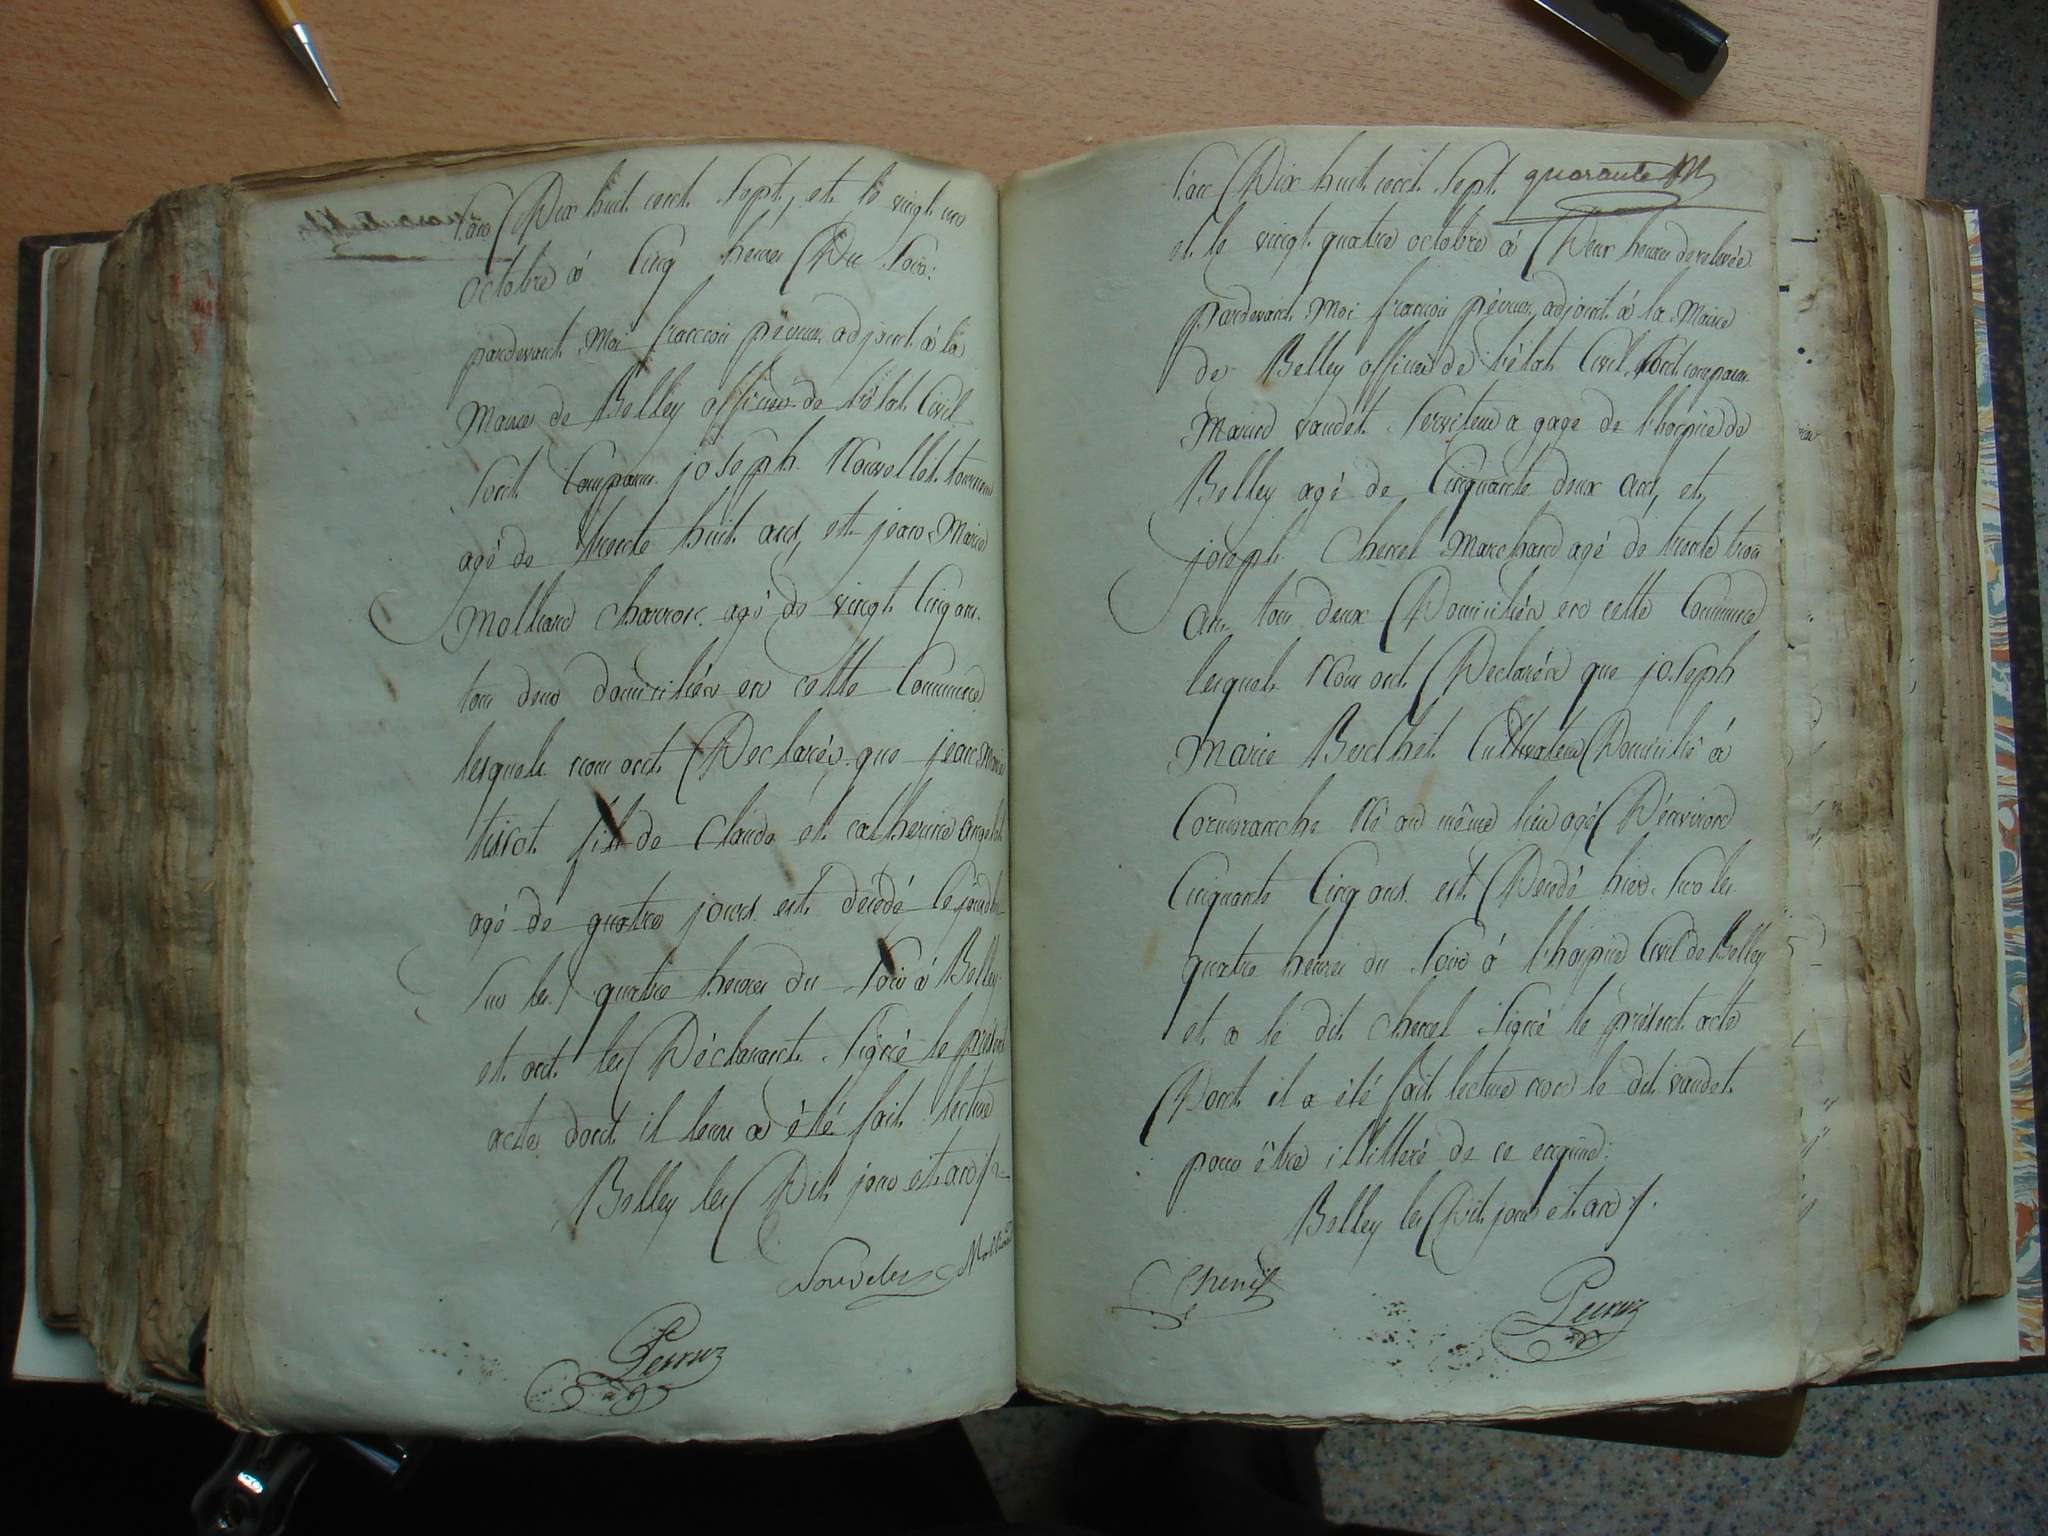 L'an Dix huit cent Sept, et le vingt un
octobre à Cinq heures Du Soir:
pardevant Moi françois péruz adjoint à la
Mairie de Belley officier de l'état Civil
Sont Comparu joseph Nouvellet tourneur
agé de trente huit ans, et jean Marie
Molliard charron agé de vingt Cinq ans
tous deux domiciliés en cette Commune
lesquels nous ont Declarés que jean Marie
tissot fils de Claude et catherine
agé de quatre jours est décédé
Sur les quatre heures du Soir à Belley
et ont les Déclarants Signé le présent
acte dont il leur a été fait lecture
Belley les Dit jour et an
Nouvellet Molliard
Perruz
L'an Dix huit cent Sept quarante
et le vingt quatre octobre à Deux heures de relevée
pardevant Moi françois péruz adjoint à la Mairie
de Belley officier de l'état Civil Sont comparu
Marin vaudet Serviteur a gage de l'hospice de
Belley agé de Cinquante deux ans, et
joseph Chenel Marchand agé de trente trois
ans tous deux Domiciliés en cette Commune
lesquels Nous ont Declarés que joseph
Marie Berthet Cultivateur Domicilié à
Cormaranche Né au même lieu agé D'environ
Cinquante Cinq ans est Decédé hier Sur les
quatre heures du Soir à l'hospice Civil de Belley
et a le dit chenel Signé le présent acte
Dont il a été fait lecture non le dit vaudet
pour être illitéré de ce enquis:
Belley les Dit jour et an
Chenel
Perruz